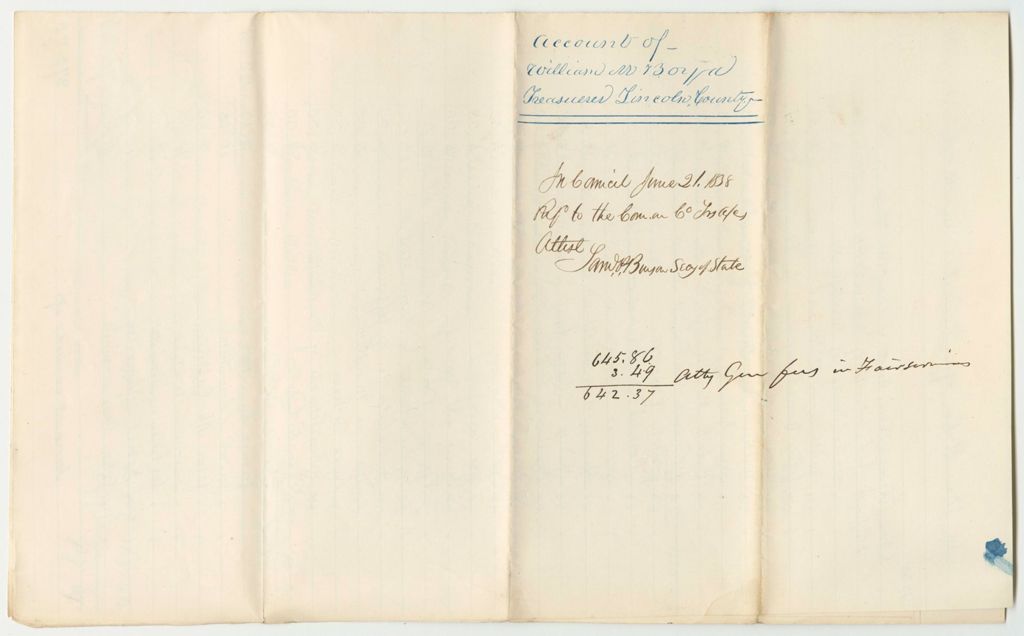 Account of
William M Boyd
Treasurer Lincoln County
In Council June 21. 1838
Ref to the Com. on Co Trs a/cs
Attest
Saml P. Benson Secy of State
645.86
3.49 Atty Gen fees in
642.37